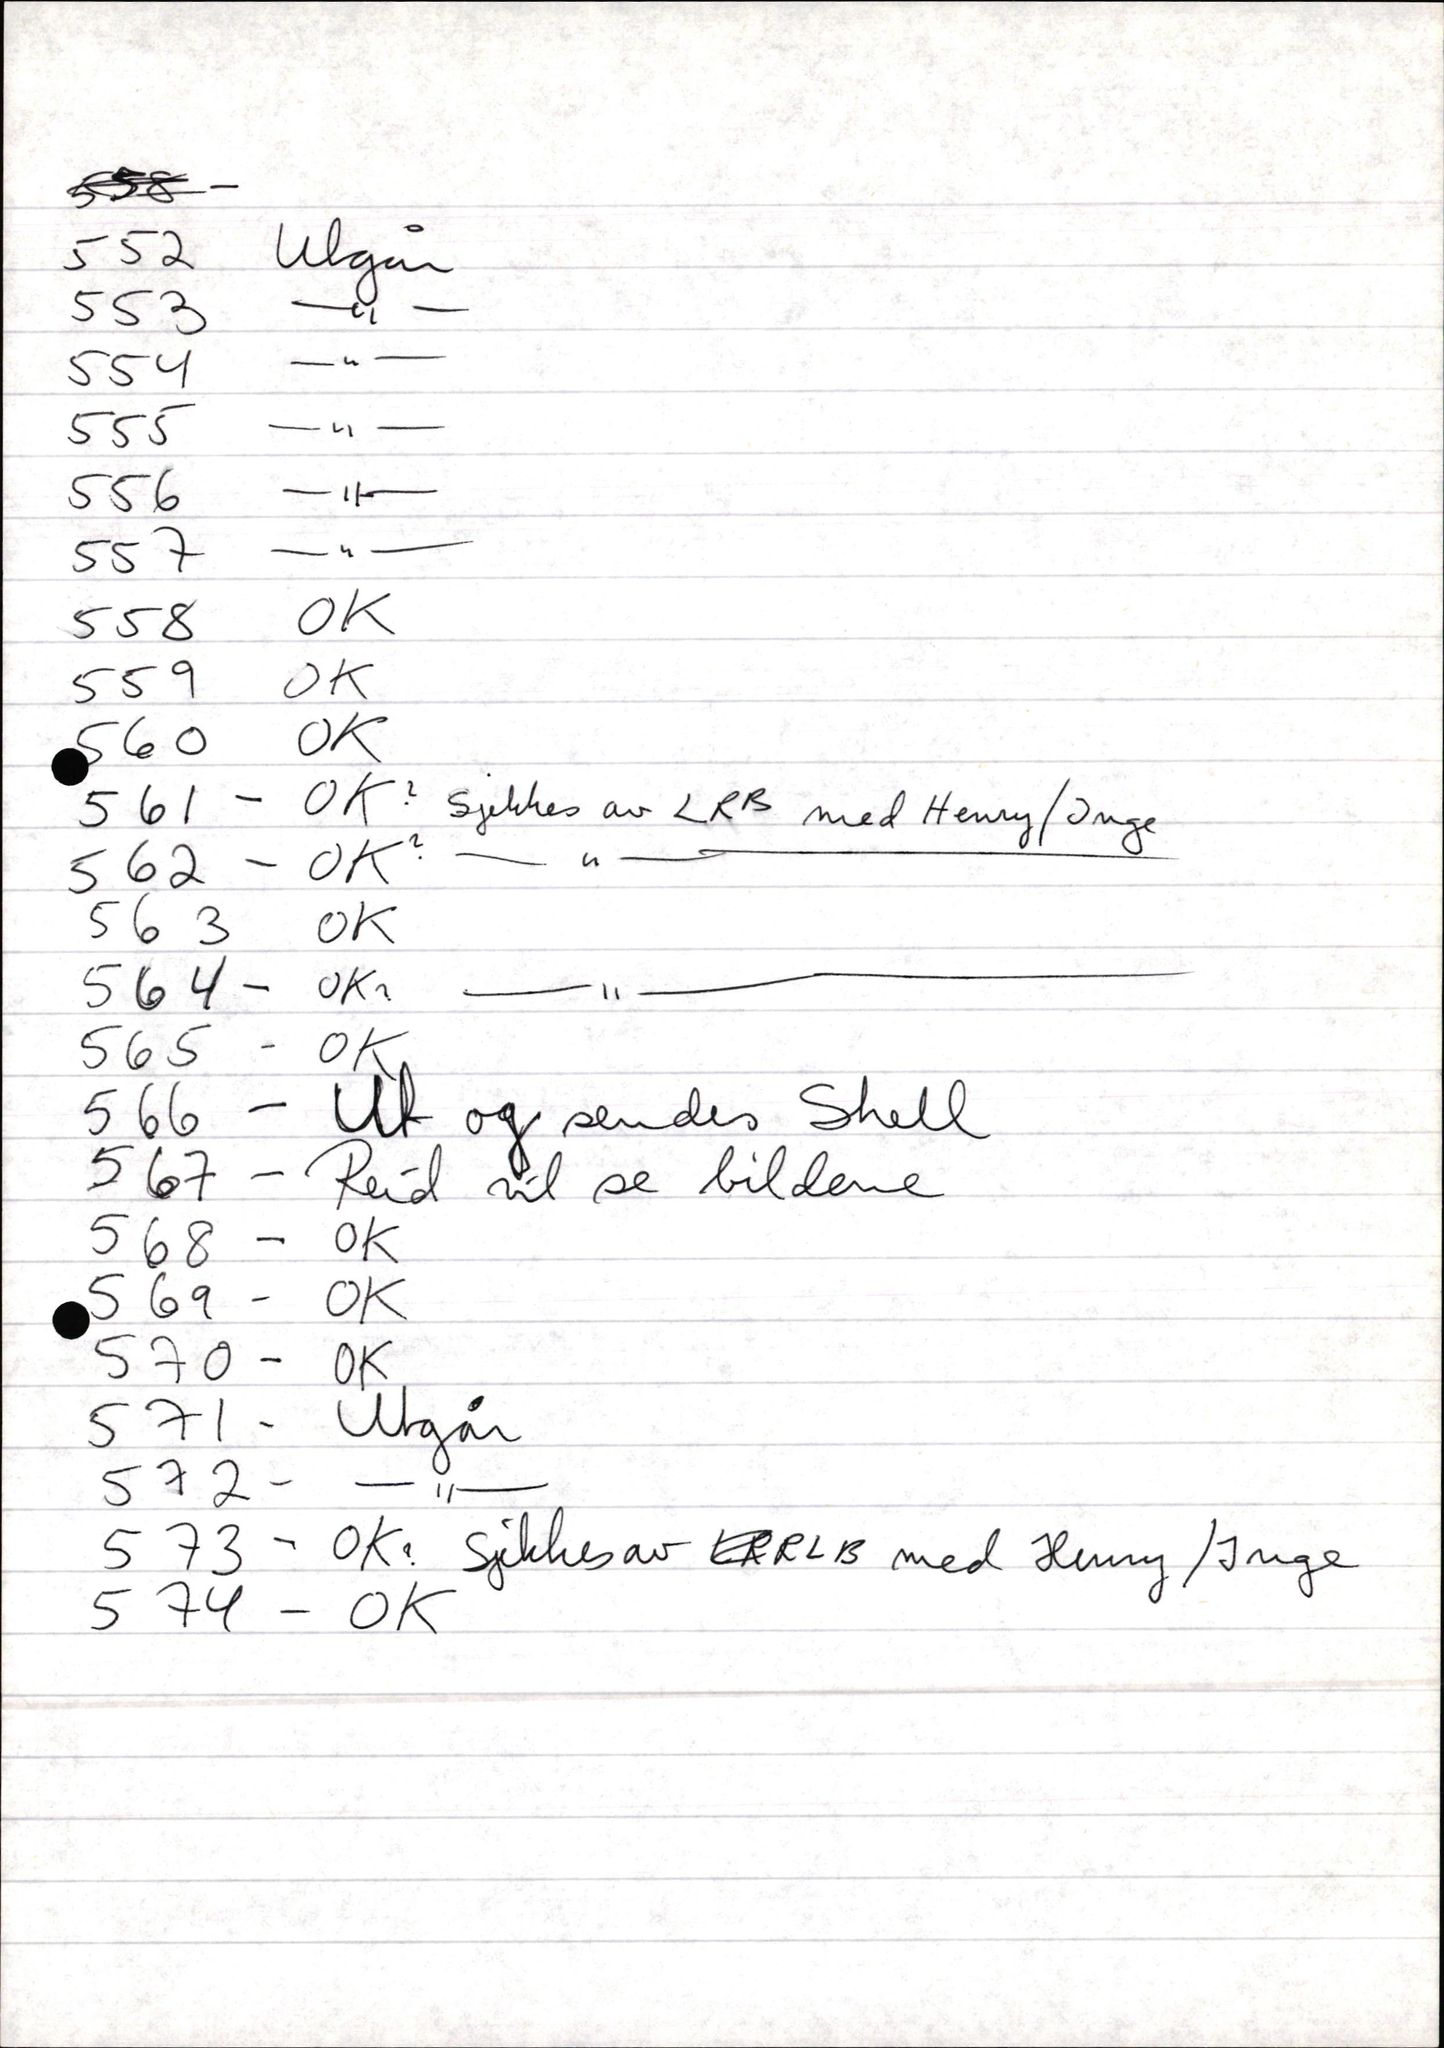 558 -
552 Utgår
553 —"—
554 —"—
555 —"—
556 —"—
557 —"—
558 OK
559 OK
560 OK
561 - OK? Sjekkes av LRB med Henry/Inge
562 - OK? —"—
563 OK
564 - OK? —"—
565 - OK
566 - Ut og sendes Shell
567 - Reid vil se bildene
568 - OK
569 - OK
570 - OK
571 - Utgår
572 - —"—
573 - OK? Sjekkes av RLB med Henry/Inge
574 - OK